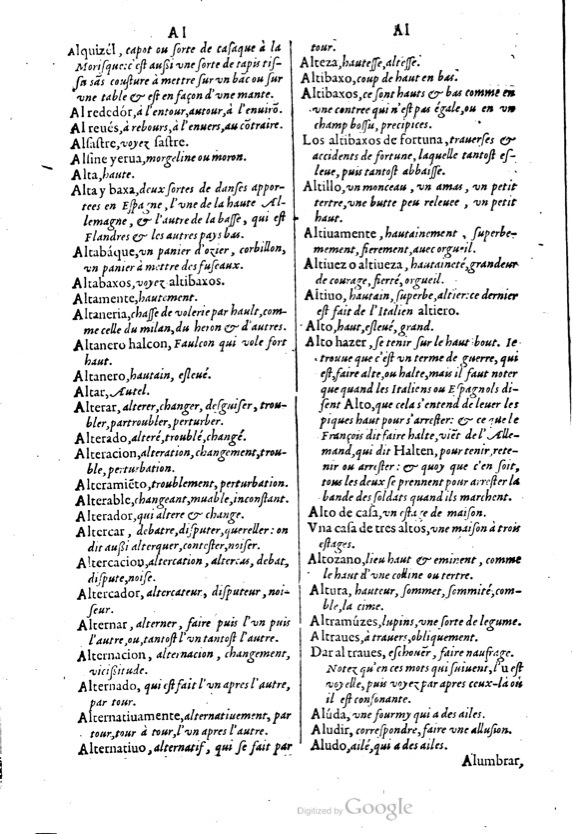 Al
Alquizél, capot ou sorte de casaque à la
Morisque: c'est aussi vne sorte de tapis tis-
su sãs cousture à mettre sur vn bac ou sur
vne table & est en façon d'vne mante.
Al rededór, à l'entour, autour, à l'enuirõ.
Al reués, à rebours, à l'enuers, au cõtraire.
Alsastre, voyez sastre.
Alsine yerua, morgeline ou moron.
Alta, haute.
Alta y baxa, deux sortes de danses appor-
tees en Espagne, l'vne de la haute Al-
lemagne, & l'autre de la basse, qui est
Flandres & les autres pays bas.
Altabáque, vn panier d'ozier, corbillon,
vn panier à mettre des fuseaux.
Altabaxos, voyez altibaxos.
Altamente, hautement.
Altaneria, chasse de volerie par hault, com-
me celle du milan, du heron & d'autres.
Altanero halcon, Faulcon qui vole fort
haut.
Altanero, hautain, esleué.
Altar, Autel.
Alterar, alterer, changer, desguiser, trou-
bler, partroubler, perturber.
Alterado, alteré, troublé, changé.
Alteracion, alteration, changement, trou-
ble, perturbation.
Altcramiẽto, troublement, perturbation.
Alterable, changeant, muable, inconstant.
Alterador, qui altere & change.
Altercar, debatre, disputer, quereller: on
dit aussi alterquer, contester, noiser.
Altercacion, altercation, altercas, debat,
dispute, noise.
Altercador, altercateur, disputeur, noi-
seur.
Alternar, alterner, faire puis l'vn puis
l'autre, ou, tantost l'vn tantost l'autre.
Alternacion, alternacion, changement,
vicissitude.
Alternado, qui est fait l'vn apres l'autre,
par tour.
Alternatiuamente, alternatiuement, par
tour, tour à tour, l'vn apres l'autre.
Alternatiuo, alternatif, qui se fait par
Al
tour.
Alteza, hautesse, altesse.
Altibaxo, coup de haut en bas.
Altibaxos, ce sont hauts & bas comme en
vne contree qui n'est pas égale, ou en vn
champ bossu, precipices.
Los altibaxos de fortuna, trauerses &
accidents de fortune, laquelle tantost es-
leue, puis tantost abbaisse.
Altillo, vn monceau, vn amas, vn petit
tertre, vne butte peu releuee, vn petit
haut.
Altiuamente, hautainement, superbe-
mement, fierement, auec orgueil.
Altiuez o altiueza, hautaineté, grandeur
de courage, fierté, orgueil.
Altiuo, hautain, superbe, altier: ce dernier
est fait de l'Italien altiero.
Alto, haut, esleué, grand.
Alto hazer, se tenir sur le haut bout. Ie
trouue que c'est vn terme de guerre, qui
est, faire alte, ou halte, mais il faut noter
que quand les Italiens ou Espagnols di-
sent Alto, que cela s'entend de leuer les
piques haut pour s'arrester: & ce que le
François dit faire halte, viẽt de l'Alle-
mand, qui dit Halten, pour tenir, rete-
nir ou arrester: & quoy que c'en soit,
tous les deux se prennent pour arrester la
bande des soldats quand ils marchent.
Alto de casa, vn estage de maison.
Vna casa de tres altos, vne maison à trois
estages.
Altozano, lieu haut & eminent, comme
le haut d'vne colline ou tertre.
Altura, hauteur, sommet, sommité, com-
ble, la cime.
Altramúzes, lupins, vne sorte de legume.
Altraues, à trauers, obliquement.
Dar al traues, eschouër, faire naufrage.
Notez qu'en ces mots qui suiuent, l'u est
voyelle, puis voyez par apres ceux-là où
il est consonante.
Alúda, vne fourmy qui a des ailes.
Aludir, correspondre, faire vne allusion.
Aludo, ailé, qui a des ailes.
Alumbrar,
Digitized by Google